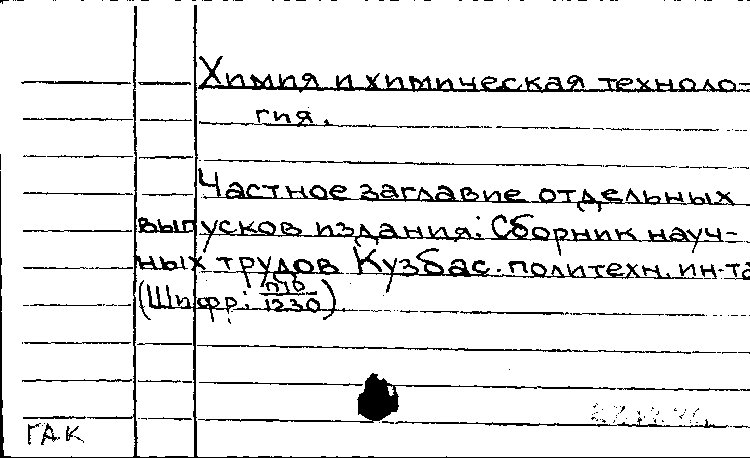 Химия и химическая техноло=
гия.
Частное заглавие отдельных
выпусков издания: Сборник науч-
ных трудов Кузбас. политехн. ин-та
(Шифр: 1230).
ГАК